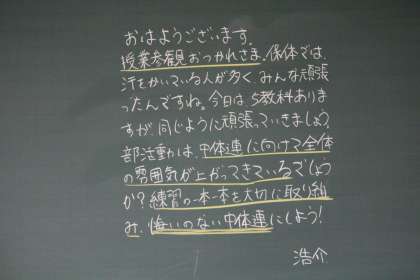 おはようございます。
授業参観おつかれさま。保体では、
汗をかいている人が多く みんな頑張
ったんですね。今日は 5教科ありま
すが 同じように頑張っていきましょう。
部活動は、中体連に向けて全体
の雰囲気が上がってきているでしょう
か?練習の一本一本を大切に取り組
み、悔いのない中体連にしよう!
浩介